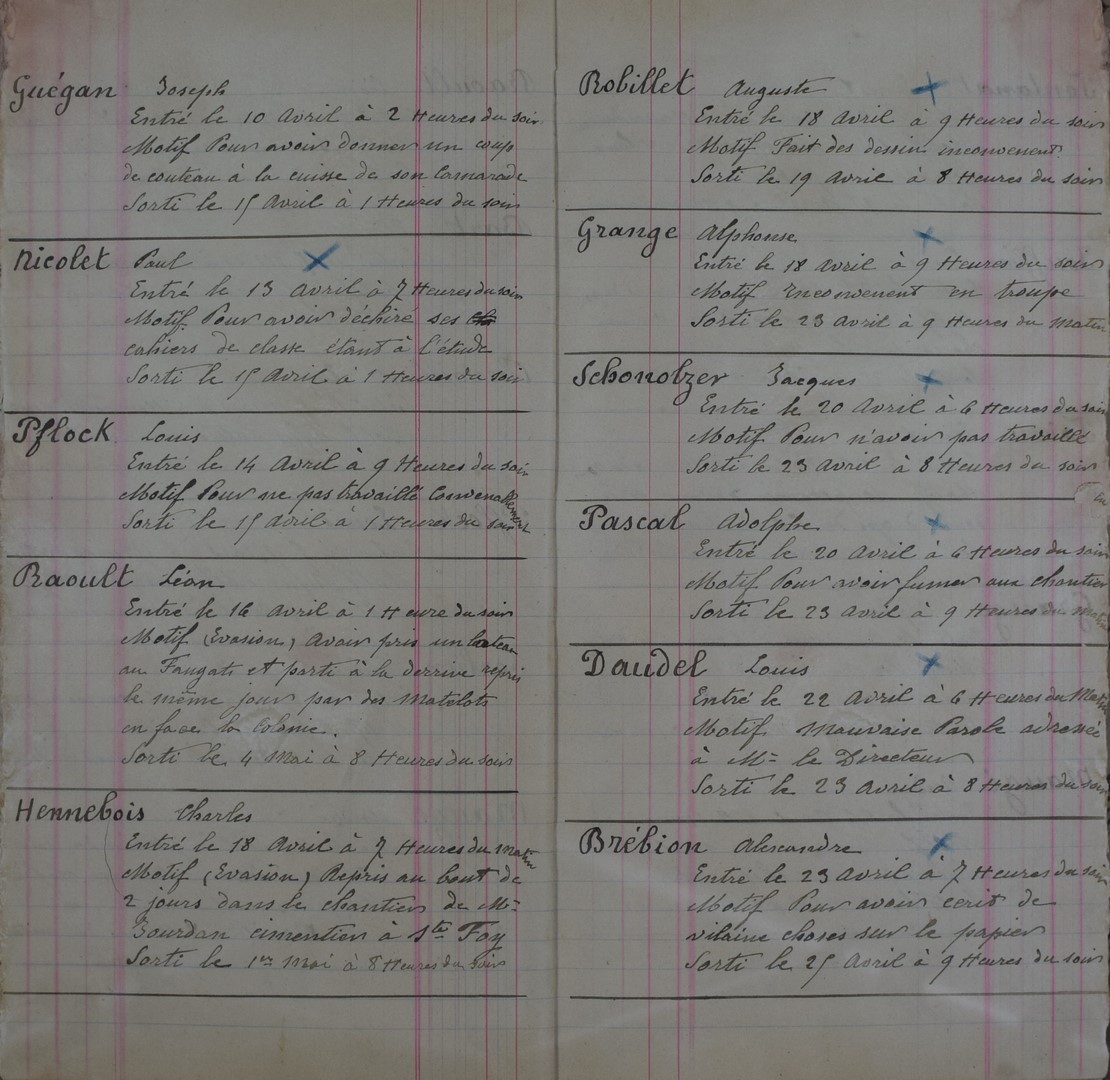 Guégan Joseph
Entré le 10 Avril à 2 Heures du soir
Motif Pour avoir donner un coup
de couteau à la cuisse de son Camarade
Sorti le 15 Avril à 1 Heures du soir
Nicolet Paul
Entré le 13 Avril à 7 Heures du soir
Motif Pour avoir déchiré ses
cahiers de classe étant à l'étude
Sorti le 15 Avril à 1 Heures du soir
Pflock Louis
Entré le 14 Avril à 9 Heures du soir
Motif Pour ne pas travaillé Convenablement
Sorti le 15 Avril à 1 Heures du soir
Raoult Léon
Entré le 16 Avril à 1 Heure du soir
Motif (Evasion) Avoir pris un bateau
au Fangats et parti à la derrive repris
le même jour par des Matelots
en face la Colonie.
Sorti le 4 Mai à 8 Heures du soir
Hennebois Charles
Entré le 18 Avril à 7 Heures du matin
Motif (Evasion) Repris au bout de
2 jours dans le chantier de Mr
Jourdan cimentier à Ste Foy
Sorti le 1er Mai à 8 Heures du soir
Robillet Auguste
Entré le 18 Avril à 9 Heures du soir
Motif Fait des dessin inconvenent.
Sorti le 19 Avril à 8 Heures du soir
Grange Alphonse
Entré le 18 Avril à 9 Heures du soir
Motif Inconvenent en troupe
Sorti le 23 Avril à 9 Heures du Matin
Schonolzer Jacques
Entré le 20 Avril à 6 Heures du soir
Motif Pour n'avoir pas travaillé
Sorti le 23 Avril à 8 Heures du soir
Pascal Adolphe
Entré le 20 Avril à 6 Heures du soir
Motif Pour avoir fumer aux chantier
Sorti le 23 Avril à 9 Heures du Matin
Daudel Louis
Entré le 22 Avril à 6 Heures du Matin
Motif Mauvaise Parole adressée
à Mr le Directeur
Sorti le 23 Avril à 8 Heures du soir
Brébion Alexandre
Entré le 23 Avril à 7 Heures du soir
Motif Pour avoir ecrit de
vilaine choses sur le papier
Sorti le 25 Avril à 9 Heures du soir